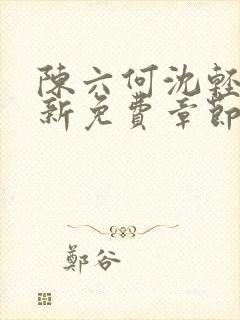 陳六何沈輕
新免費章節
鄭谷